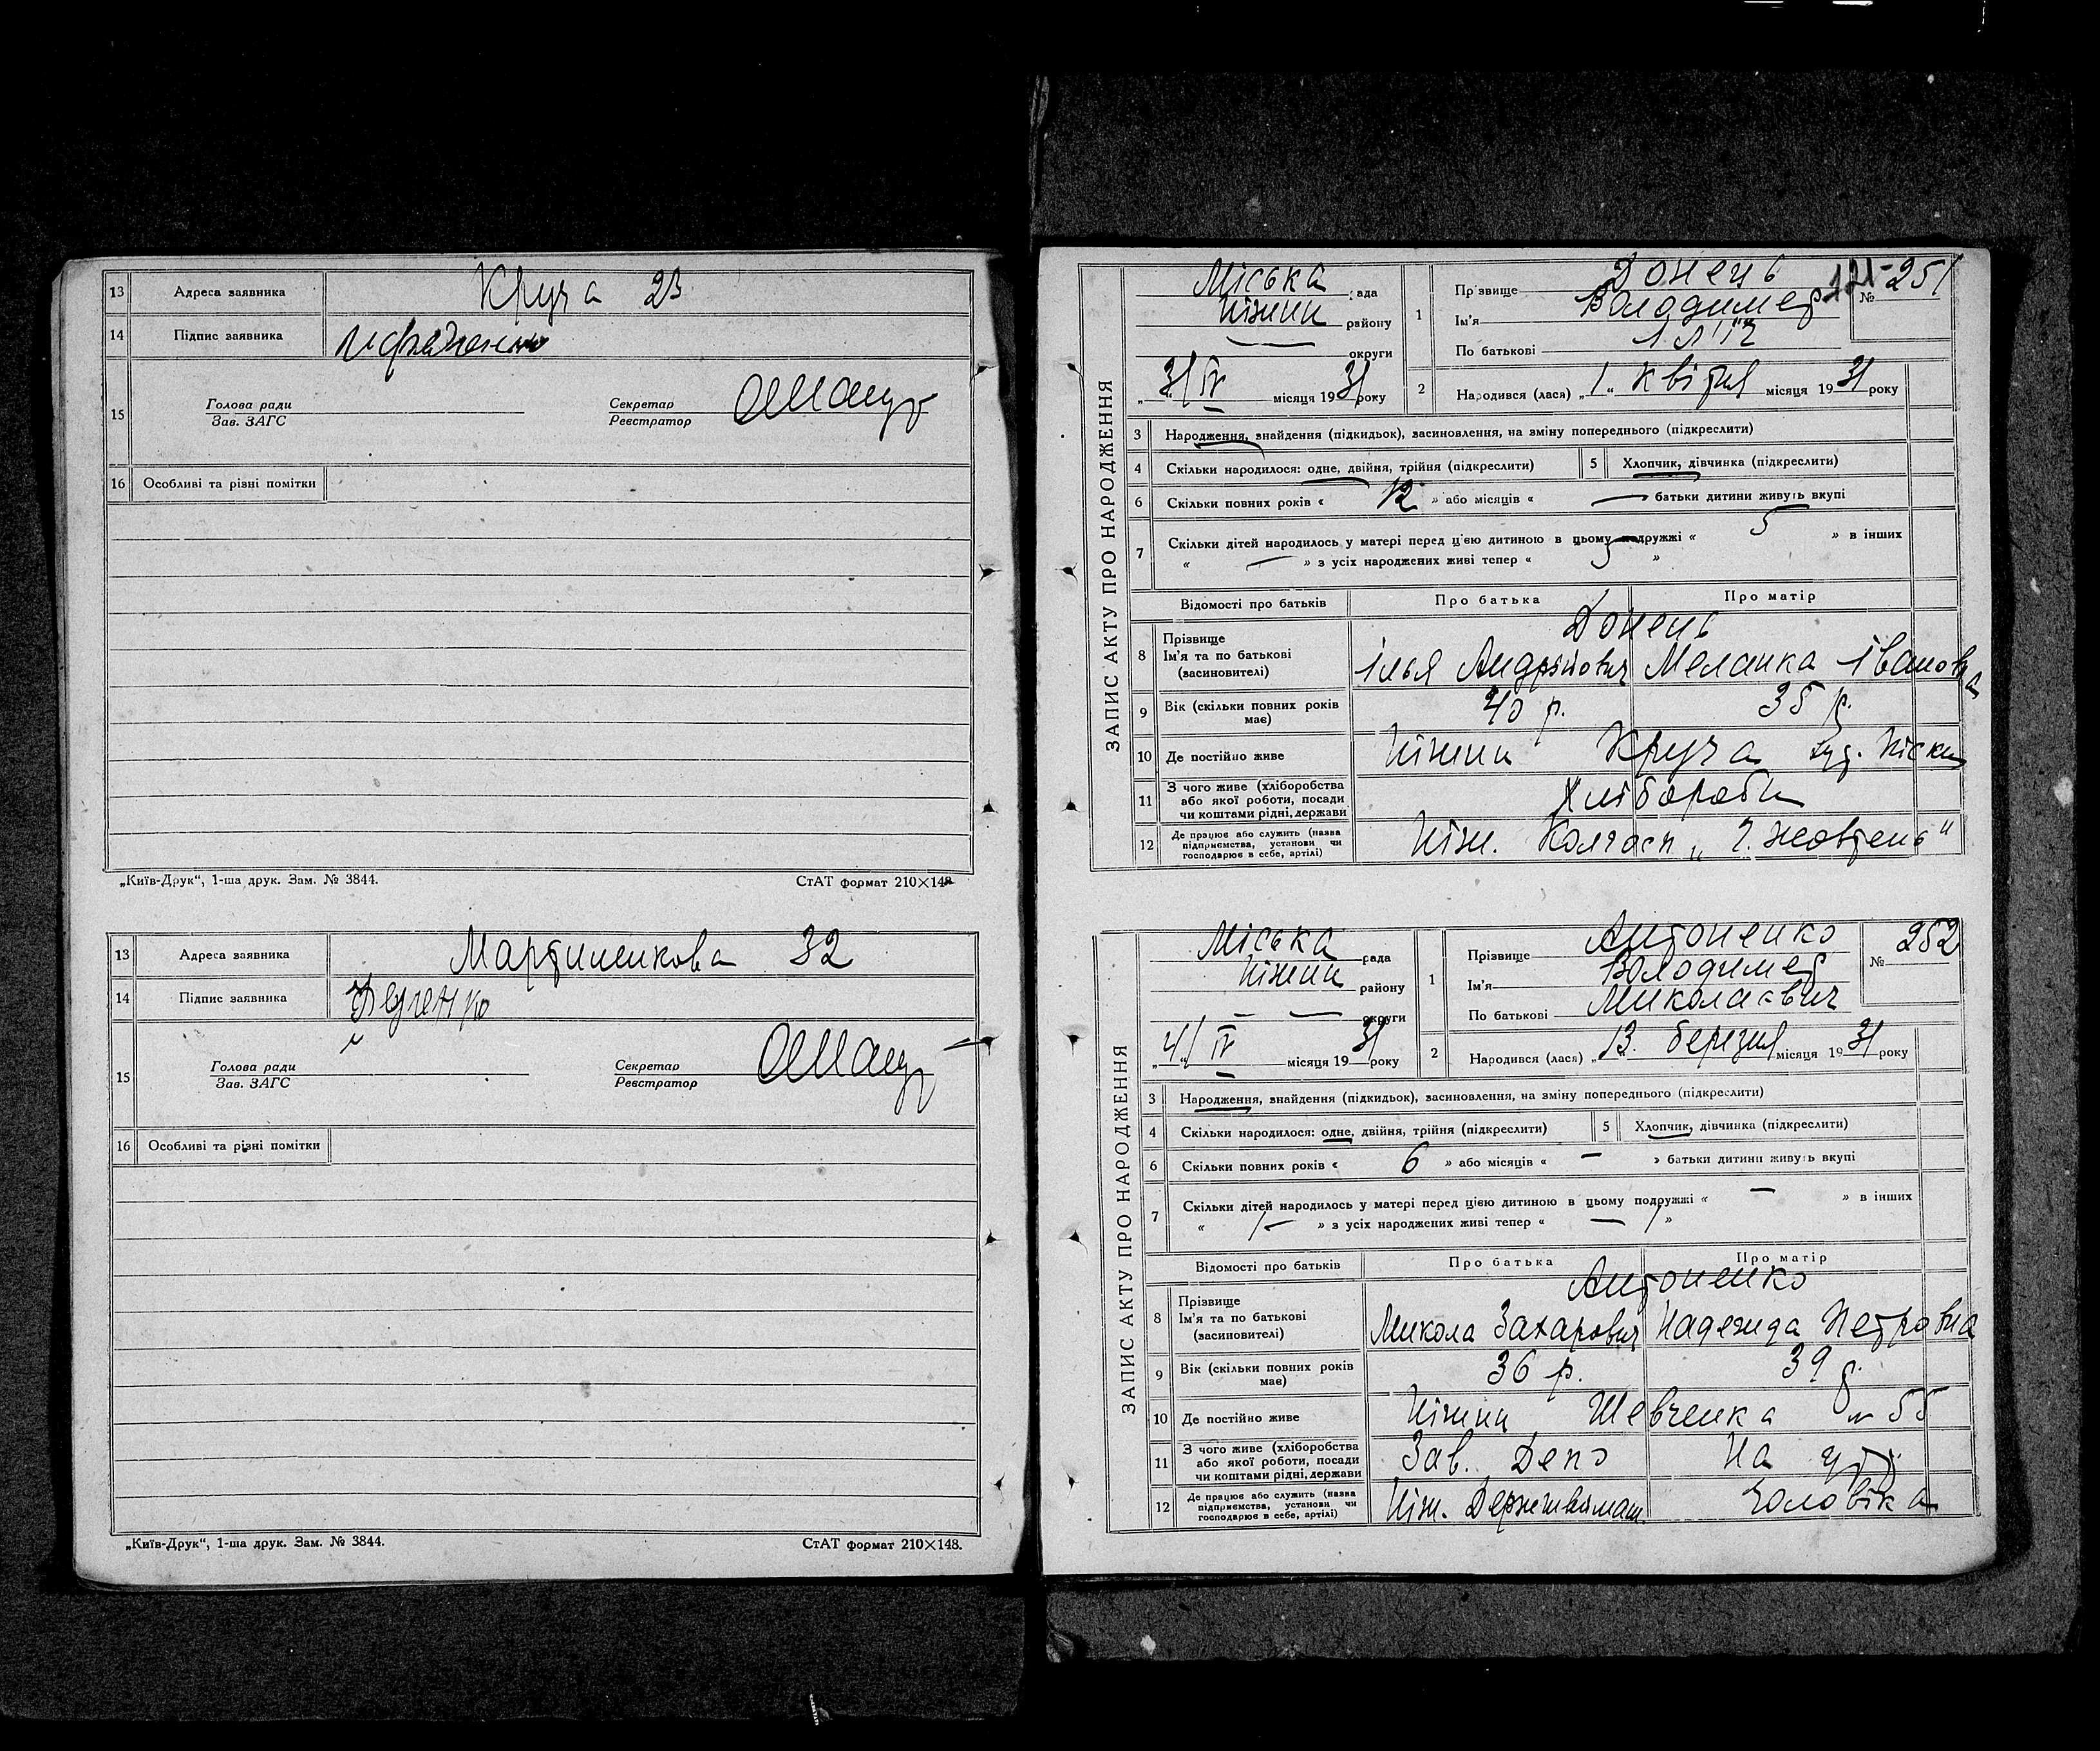 13 Адреса заявника Круча 23
14 Підпис заявника
15 Голова ради
Зав. ЗАГС
Секретар
Реєстратор
16 Особливі та різні помітки
„Київ-Друк“, 1-ша друк. Зам. № 3844. СтАТ формат 210×148
13 Адреса заявника Мартиненкова 32
14 Підпис заявника
15 Голова ради
Зав. ЗАГС
Секретар
Реєстратор
16 Особливі та різні помітки
„Київ-Друк“, 1-ша друк. Зам. № 3844. СтАТ формат 210×148.
ЗАПИС АКТУ ПРО НАРОДЖЕННЯ
Міська рада
Ніжин району
округи
3/IV місяця 1931 року
1 Прізвище Донець
№ 251
Ім'я Володимер
По батькові Ілліч
2 Народився (лася) „1“ квітня місяця 1931 року
3 Народження, знайдення (підкидьок), засиновлення, на зміну попереднього (підкреслити)
4 Скільки народилося: одне, двійня, трійня (підкреслити) 5 Хлопчик, дівчинка (підкреслити)
6 Скільки повних років « 12 » або місяців « — батьки дитини живуть вкупі
7 Скільки дітей народилось у матері перед цією дитиною в цьому подружжі « 5 » в інших
« — » з усіх народжених живі тепер « »
Відомості про батьків Про батька Про матір
8 Прізвище Донець
Ім'я та по батькові Ілья Андрійович Меланка Івановна
(засиновителі)
9 Вік (скільки повних років має) 40 р. 35 р.
10 Де постійно живе Ніжин Круча
11 З чого живе (хліборобства
або якої роботи, посади
чи коштами рідні, держави Хлібороби
12 Де працює або служить (назва
підприємства, установи чи
господарює в себе, артілі) Ніж. Колгосп „ жовтень“
ЗАПИС АКТУ ПРО НАРОДЖЕННЯ
Міська рада
Ніжин району
— — округи
4/IV місяця 1931 року
1 Прізвище Антоненко
№ 252
Ім'я Володимер
По батькові Миколаєвич
2 Народився (лася) „13. березня місяця 1931 року
3 Народження, знайдення (підкидьок), засиновлення, на зміну попереднього (підкреслити)
4 Скільки народилося: одне, двійня, трійня (підкреслити) 5 Хлопчик, дівчинка (підкреслити)
6 Скільки повних років « 6 » або місяців « — » батьки дитини живуть вкупі
7 Скільки дітей народилось у матері перед цією дитиною в цьому подружжі « — » в інших
« 1 — » з усіх народжених живі тепер « — 1 »
Відомості про батьків Про батька Про матір
8 Прізвище Антоненко
Ім'я та по батькові Микола Захарович Надежда Петровна
(засиновителі)
9 Вік (скільки повних років має) 36 р. 39 р.
10 Де постійно живе Ніжин Шевченка № 55
11 З чого живе (хліборобства
або якої роботи, посади
чи коштами рідні, держави Зав. Депо На утр.
12 Де працює або служить (назва
підприємства, установи чи
господарює в себе, артілі) Ніж. чоловіка